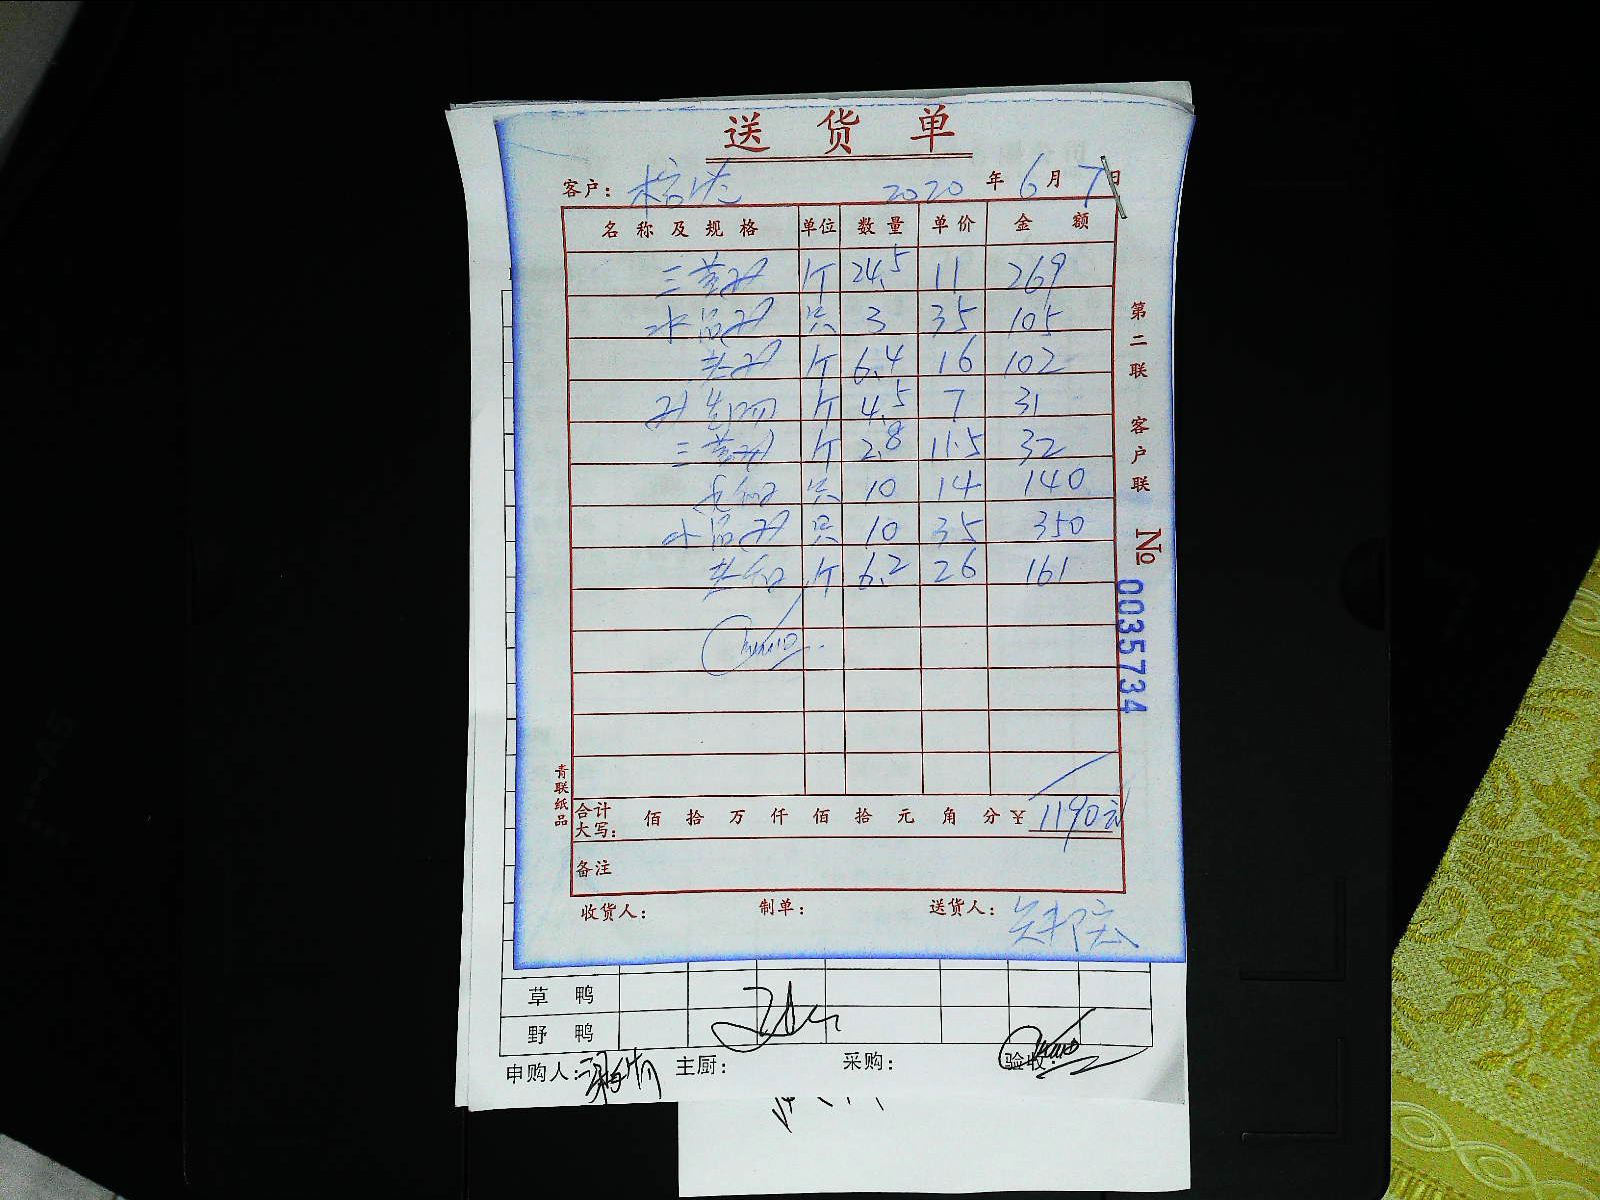 送 货 单
客户: 2020 年 6 月 7 日
名 称 及 规 格 单位 数 量 单 价 金 额
三黄鸡 斤 24.5 11 269
水晶鸡 只 3 35 105
斤 6.4 16 102
斤 4.5 7 31
三黄鸡 斤 2.8 11.5 32
只 10 14 140
水晶鸡 只 10 35 350
斤 6.2 26 161
合计大写: 佰 拾 万 仟 佰 拾 元 角 分 ¥ 1190元
备注
收货人: 制单: 送货人:
第二联 客户联
No 0035734
青联纸品
草 鸭
野 鸭
申购人: 主厨: 采购: 验收: